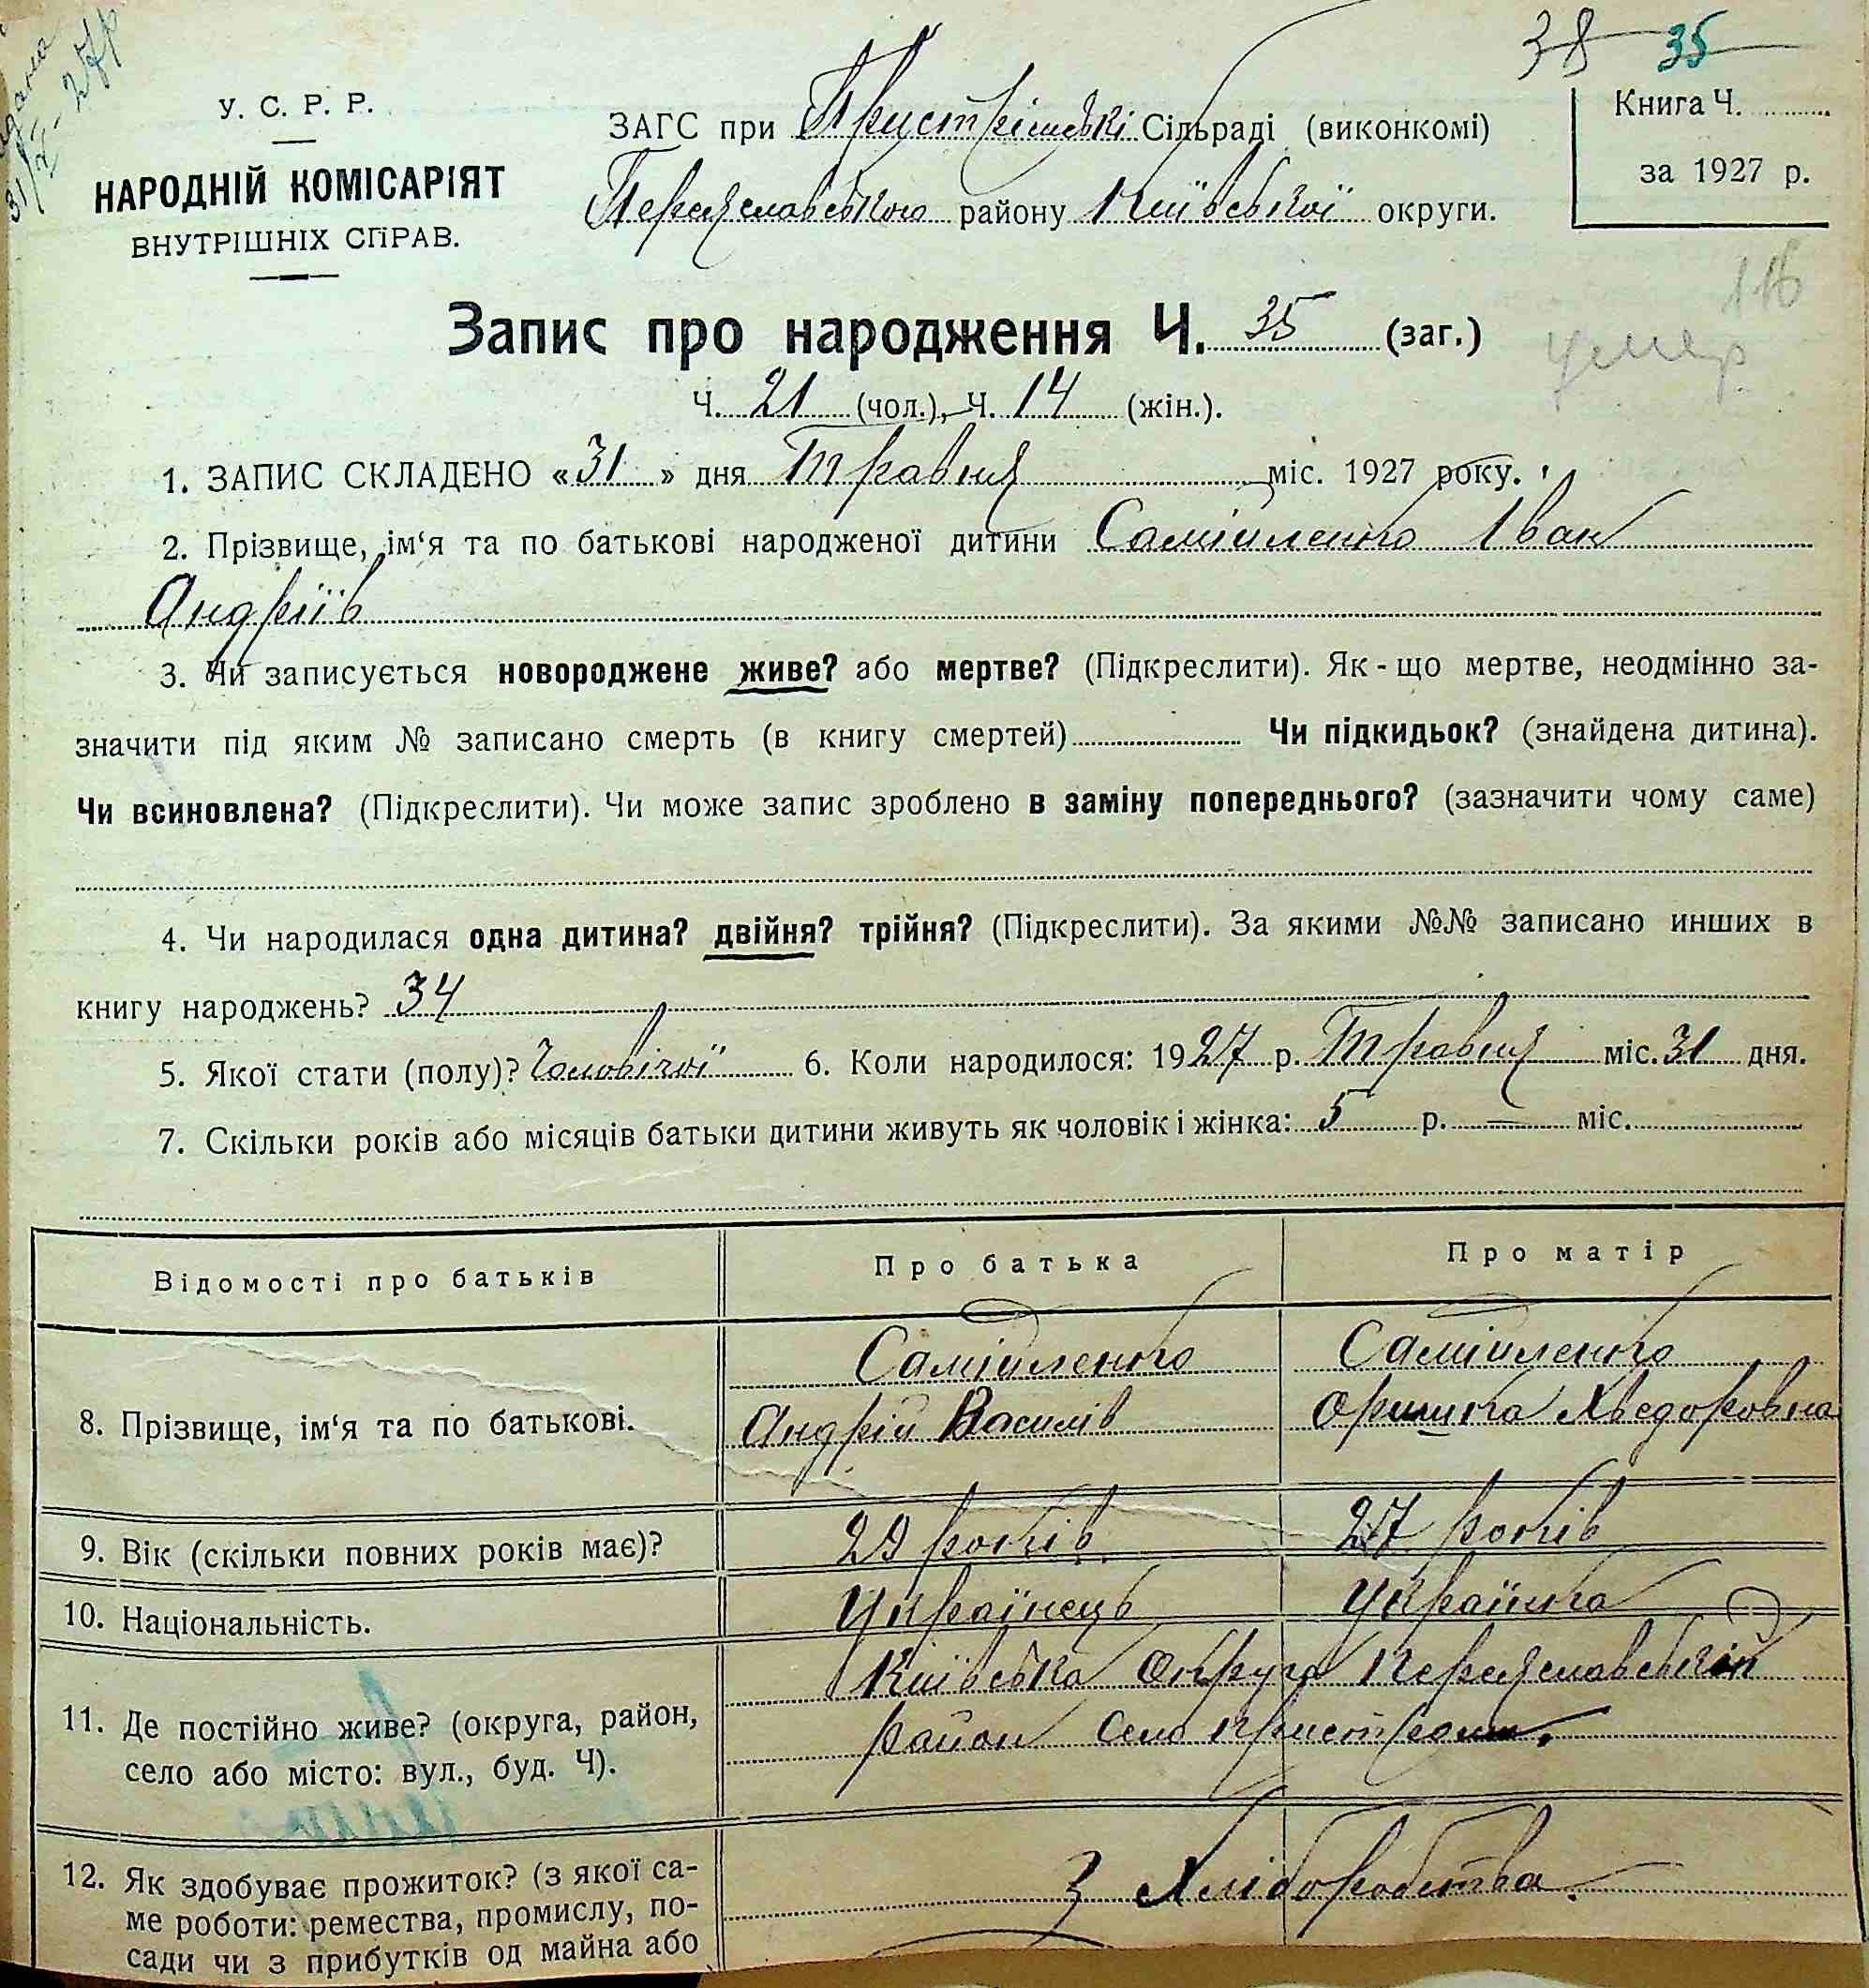 38 35
31/V-27р
У. С. Р. Р.
НАРОДНІЙ КОМІСАРІЯТ
ВНУТРІШНІХ СПРАВ.
ЗАГС при Пристрімській Сільраді (виконкомі)
Переяславського району Київської округи.
Книга Ч.
за 1927 р.
116
умер.
Запис про народження Ч. 35 (заг.)
Ч. 21 (чол.), Ч. 14 (жін.).
1. ЗАПИС СКЛАДЕНО «31» дня Травня міс. 1927 року.
2. Прізвище, ім‘я та по батькові народженої дитини Самійленко Іван
Андріїв
3. Чи записується новороджене живе? або мертве? (Підкреслити). Як-що мертве, неодмінно за-
значити під яким № записано смерть (в книгу смертей) Чи підкидьок? (знайдена дитина).
Чи всиновлена? (Підкреслити). Чи може запис зроблено в заміну попереднього? (зазначити чому саме)
4. Чи народилася одна дитина? двійня? трійня? (Підкреслити). За якими №№ записано инших в
книгу народжень? 34
5. Якої стати (полу)? Чоловічої 6. Коли народилося: 1927 р. Травня міс. 31 дня.
7. Скільки років або місяців батьки дитини живуть як чоловік і жінка: 5 р. — міс.
Відомості про батьків Про батька Про матір
8. Прізвище, ім‘я та по батькові.
Самійленко Самійленко
Андрій Василів Оришка Хведоровна
9. Вік (скільки повних років має)? 29 років 27 років
10. Національність. Українець Українка
11. Де постійно живе? (округа, район,
село або місто: вул., буд. Ч).
Київська Округа Переяславський
район Село
12. Як здобуває прожиток? (з якої са-
ме роботи: ремества, промислу, по-
сади чи з прибутків од майна або
З Хліборобства.